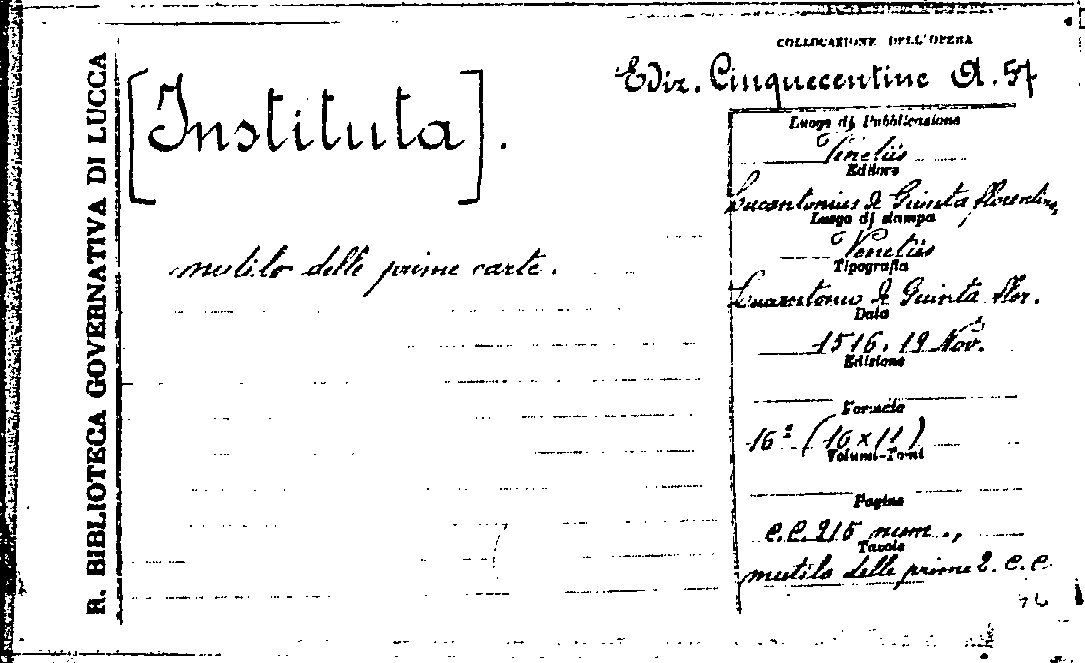 R. BIBLIOTECA GOVERNATIVA DI LUCCA
[Instituta].
mutilo delle prime carte.
COLLOCAZIONE DELL'OPERA
Ediz. Cinquecentine A. 57
Luogo di Pubblicazione
Venetiis
Editore
Lucantonius de Giunta florentinus,
Luogo di stampa
Venetiis
Tipografia
Lucantonius de Giunta flor.
Data
1516. 19 Nov.
Edizione
Formato
16º (16 x 11)
Volumi-Tomi
Pagine
c.c. 215 num.,
Tavole
mutilo delle prime 2. c.c.